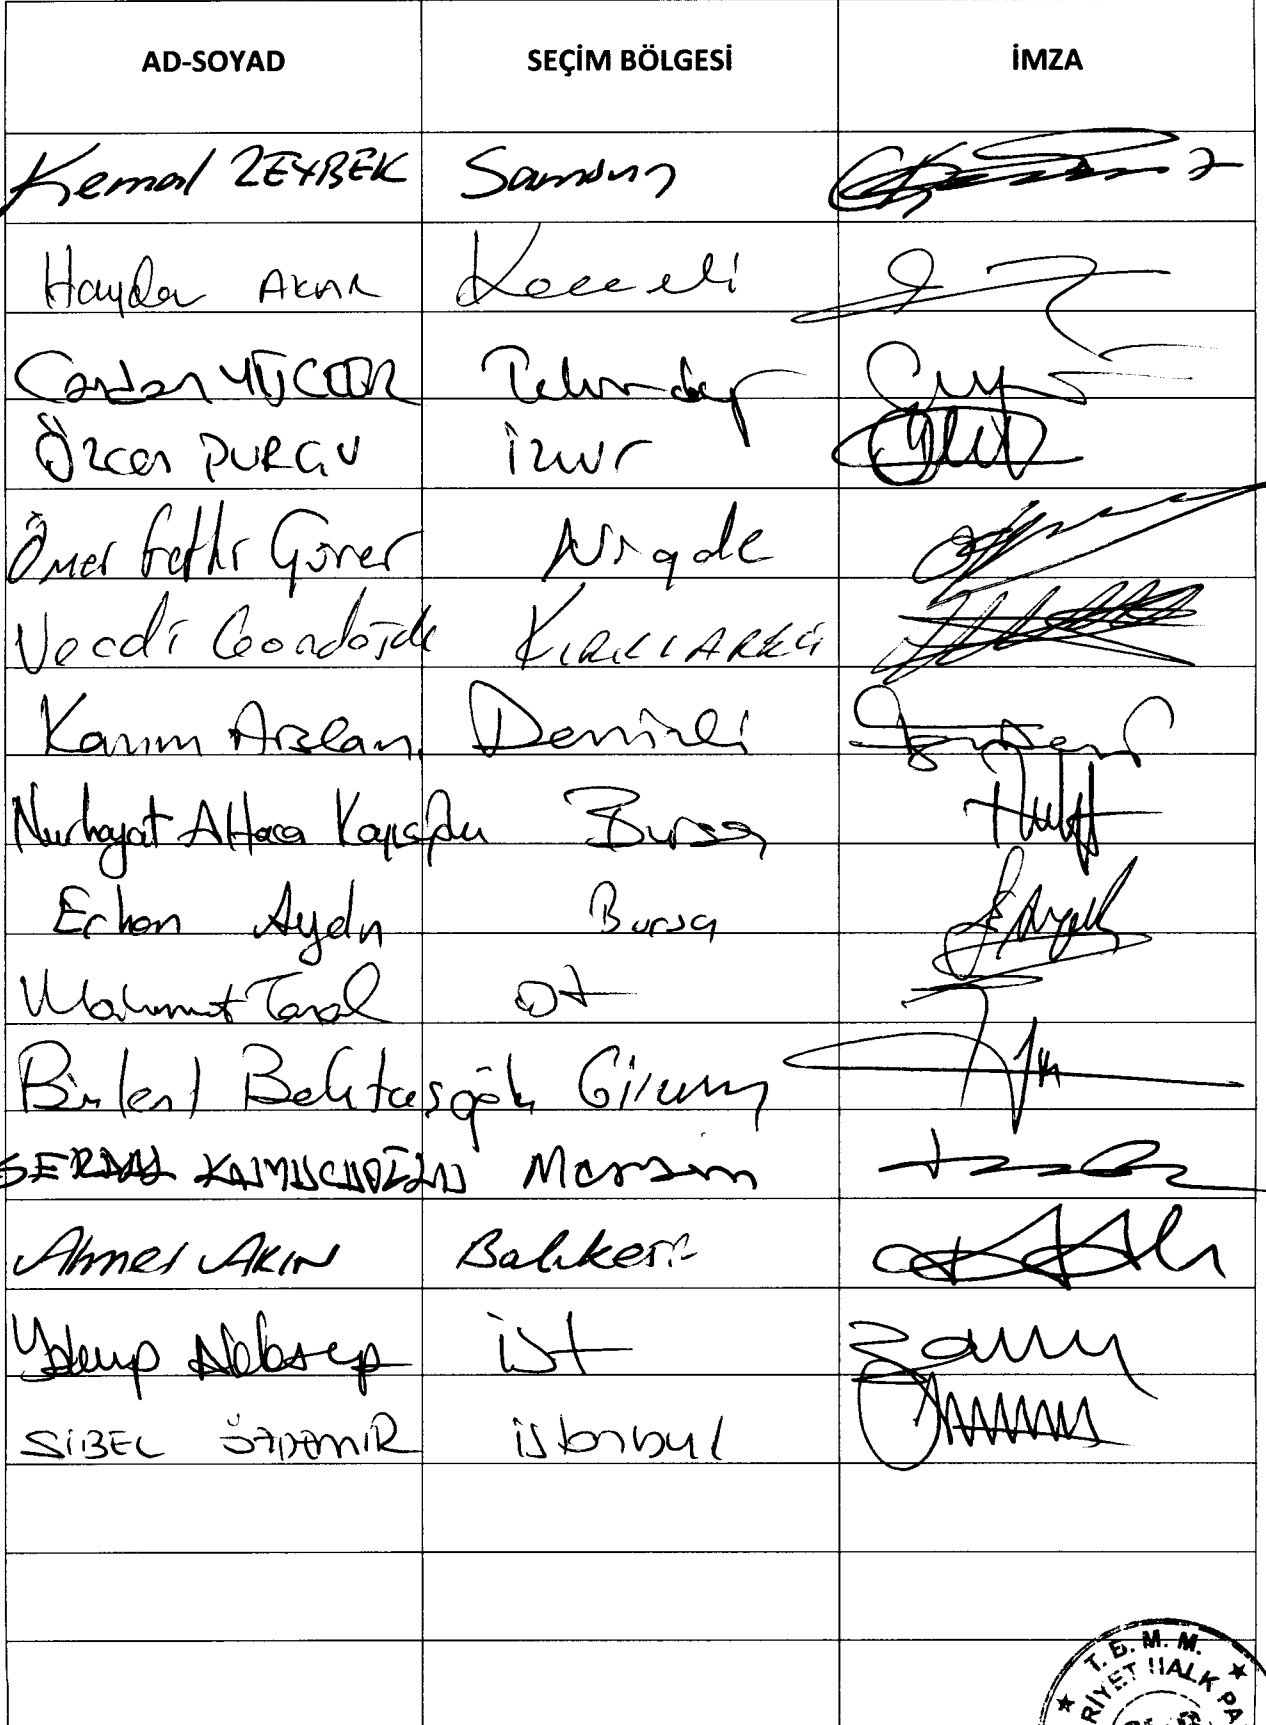 AD-SOYAD SEÇİM BÖLGESİ İMZA
Kemal ZEYBEK Samsun
Haydar AKAR Kocaeli
Candan YÜCEER Tekirdağ
Özcan PURÇU İzmir
Ömer Fethi Gürer Niğde
Vecdi Gündoğdu KIRKLARELİ
Kazım Arslan Denizli
Nurhayat Altaca Kayışoğlu Bursa
Erkan Aydın Bursa
Mahmut Tanal İst
Bülent Bektaşoğlu Giresun
SERDAL KUYUCUOĞLU Mersin
Ahmet AKIN Balıkesir
Yakup Akkaya İst
SİBEL ÖZDEMİR İstanbul
T.B.M.M.
RİYET HALK PA